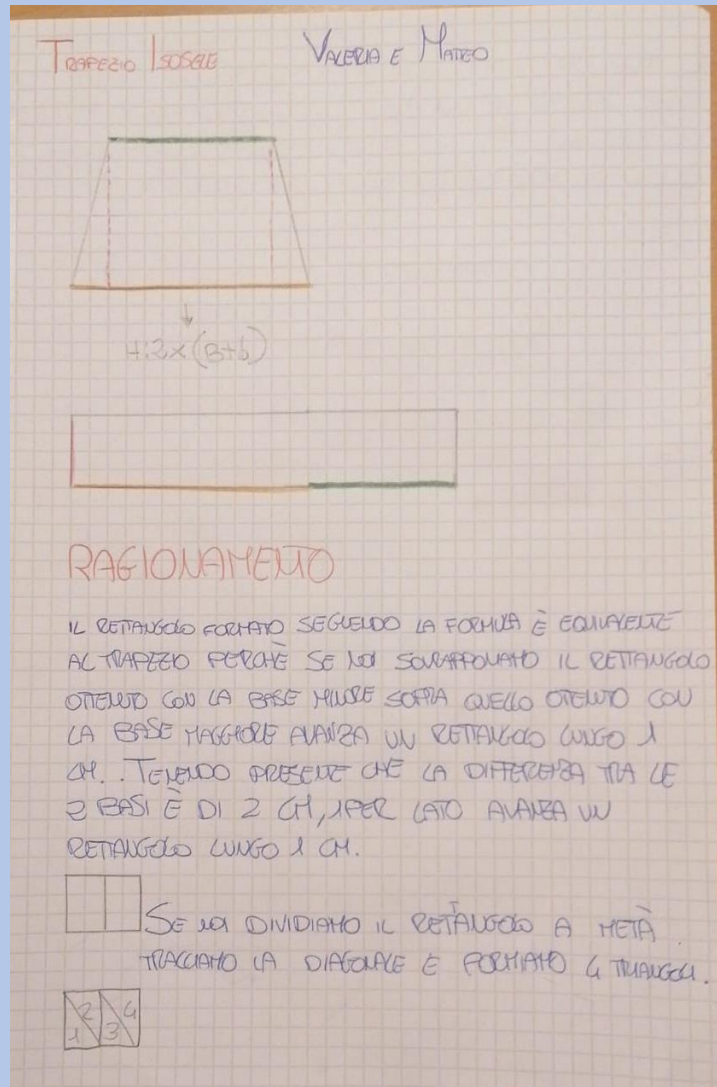 TRAPEZIO ISOSCELE VALERIA E MATTEO
H:2×(B+b)
RAGIONAMENTO
IL RETTANGOLO FORMATO SEGUENDO LA FORMULA È EQUIVALENTE
AL TRAPEZIO PERCHÈ SE NOI SOVRAPPONIAMO IL RETTANGOLO
OTTENUTO CON LA BASE MINORE SOPRA QUELLO OTTENUTO CON
LA BASE MAGGIORE AVANZA UN RETTANGOLO LUNGO 1
CM. TENENDO PRESENTE CHE LA DIFFERENZA TRA LE
2 BASI È DI 2 CM, 1 PER LATO AVANZA UN
RETTANGOLO LUNGO 1 CM.
SE NOI DIVIDIAMO IL RETTANGOLO A METÀ
TRACCIAMO LA DIAGONALE E FORMIAMO 4 TRIANGOLI.
1 2 3 4